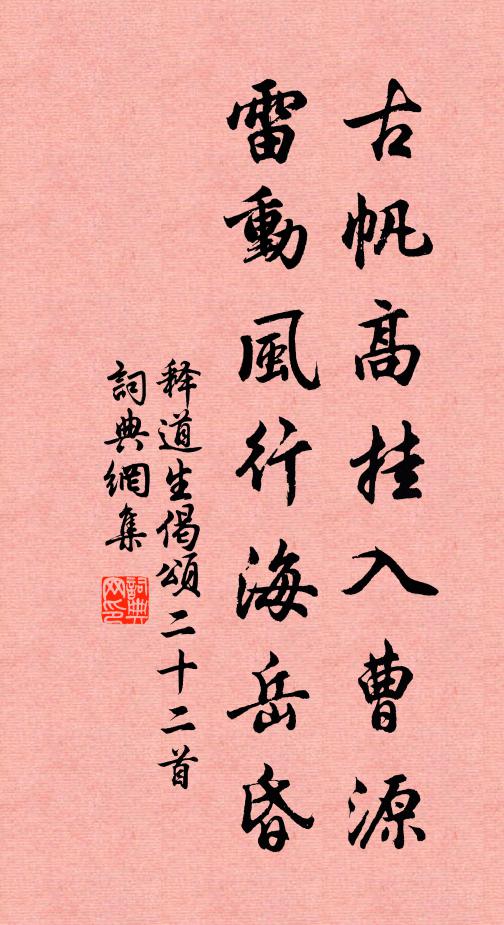 古帆高挂入曹源
雷動風行海岳昏
释道生偈頌二十二首
詞典網集